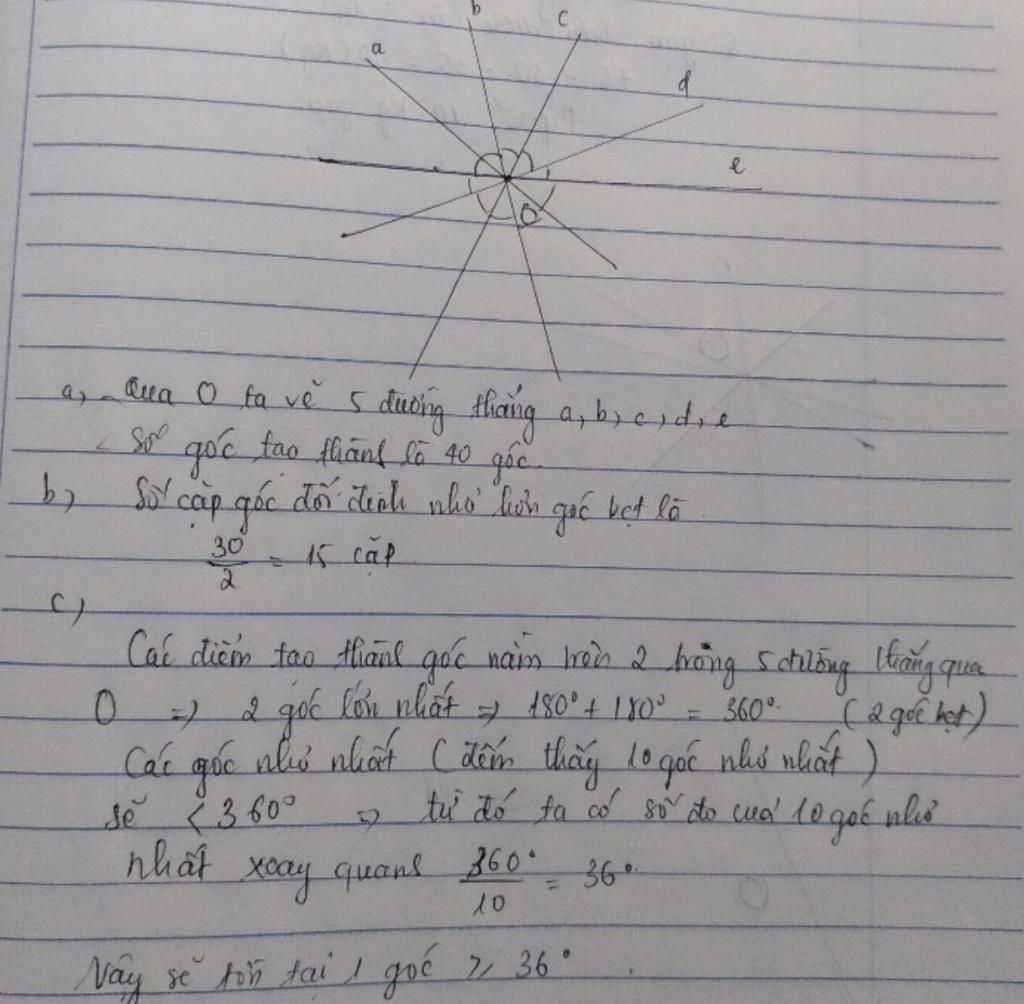 a
b
c
d
e
O
a, - Qua O ta vẽ 5 đường thẳng a, b, c, d, e
- Số góc tạo thành là 40 góc.
b, Số cặp góc đối đỉnh nhỏ hơn góc bẹt là
30/2 = 15 cặp
c,
Các điểm tạo thành góc nằm trên 2 trong 5 đường thẳng qua
O => 2 góc lớn nhất => 180° + 180° = 360° (2 góc bẹt)
Các góc nhỏ nhất (đếm thấy 10 góc nhỏ nhất)
sẽ < 360° => từ đó ta có số đo của 10 góc nhỏ
nhất xoay quanh 360°/10 = 36°
Vậy sẽ tồn tại 1 góc ≥ 36°.